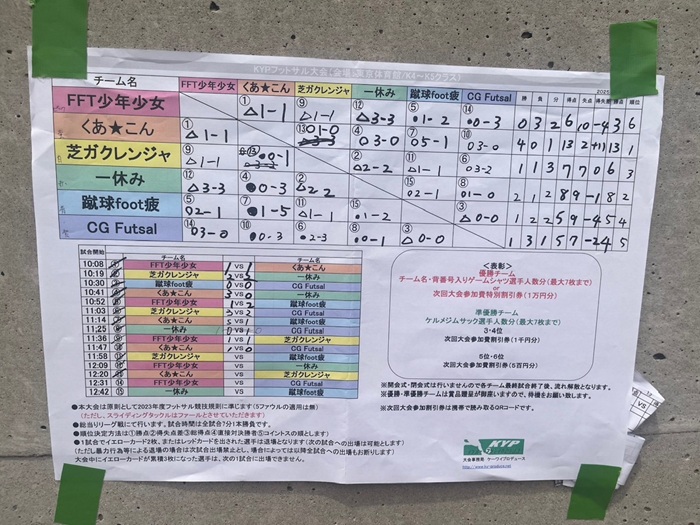 KYPフットサル大会
K4～K5クラス)
2025
チーム名 FFT少年少女 くあ★こん 芝ガクレンジャ 一休み 蹴球foot疲 CG Futsal 勝 負 分 得点 失点 得失差 勝点 順位
FFT少年少女 ①△1-1 ⑨△1-1 ⑫△3-3 ⑤●1-2 ⑭●0-3 0 3 2 6 10 -4 3 6
くあ★こん ①△1-1 ⑬○1-0 ④○3-0 ⑦○5-1 ⑩○3-0 4 0 1 13 2 +11 13 1
芝ガクレンジャ ⑨△1-1 ⑬●0-1 ②△2-2 ⑪△1-1 ⑥○3-2 1 1 3 7 7 0 6 3
一休み ⑫△3-3 ④●0-3 ②△2-2 ⑮○2-1 ⑧○1-0 2 1 2 8 9 -1 8 2
蹴球foot疲 ⑤○2-1 ⑦●1-5 ⑪△1-1 ⑮●1-2 ③△0-0 1 2 2 5 9 -4 5 4
CG Futsal ⑭○3-0 ⑩●0-3 ⑥●2-3 ⑧●0-1 ③△0-0 1 3 1 5 7 -2 4 5
試合開始 チーム名 チーム名
10:08 FFT少年少女 1 VS 1 くあ★こん
10:19 芝ガクレンジャ VS 一休み
10:30 蹴球foot疲 0 VS 0 CG Futsal
10:41 くあ★こん 3 VS 0 一休み
10:52 FFT少年少女 1 VS 2 蹴球foot疲
11:03 芝ガクレンジャ 3 VS 2 CG Futsal
11:14 くあ★こん 5 VS 1 蹴球foot疲
11:25 一休み VS CG Futsal
11:36 FFT少年少女 1 VS 1 芝ガクレンジャ
11:47 くあ★こん VS CG Futsal
11:58 芝ガクレンジャ VS 蹴球foot疲
12:09 FFT少年少女 VS 一休み
12:20 くあ★こん VS 芝ガクレンジャ
12:31 FFT少年少女 VS CG Futsal
12:42 ⑮ 一休み VS 蹴球foot疲
＜表彰＞
優勝チーム
チーム名・背番号入りゲームシャツ選手人数分（最大7枚まで）
or
次回大会参加費特別割引券（1万円分）
準優勝チーム
ケルメジムサック選手人数分（最大7枚まで）
3・4位
次回大会参加費割引券（1千円分）
5位・6位
次回大会参加費割引券（5百円分）
※開会式・閉会式は行いませんので各チーム最終試合終了後、流れ解散となります。
※優勝・準優勝チームは賞品贈呈が御座いますので、待機をお願い致します。
※次回大会参加割引券は携帯で読み取るQRコードです。
●本大会は原則として2023年度フットサル競技規則に準じます（5ファウルの適用は無）
（ただし、スライディングタックルはファールとさせていただきます）
●総当りリーグ戦にて行います。試合時間は全試合7分1本勝負です。
●順位決定方法は①勝点②得失点差③総得点④直接対決勝者⑤コイントスの順とします）
●1試合でイエローカード2枚、またはレッドカードを出された選手は退場となります（次の試合への出場は可能とします）
（ただし暴力行為等による退場の場合は次試合出場禁止とし、場合によっては以降全試合への出場もお断りします）
大会中にイエローカードが累積3枚になった選手は、次の1試合に出場できません。
KYP
大会事務局 ケーワイプロデュース